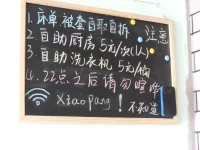 注意
1.床单被套自取自拆
2自助厨房5元/次(人)
3自助洗衣机5元/桶
4.22点之后请勿喧哗
Xiaopang!不知道